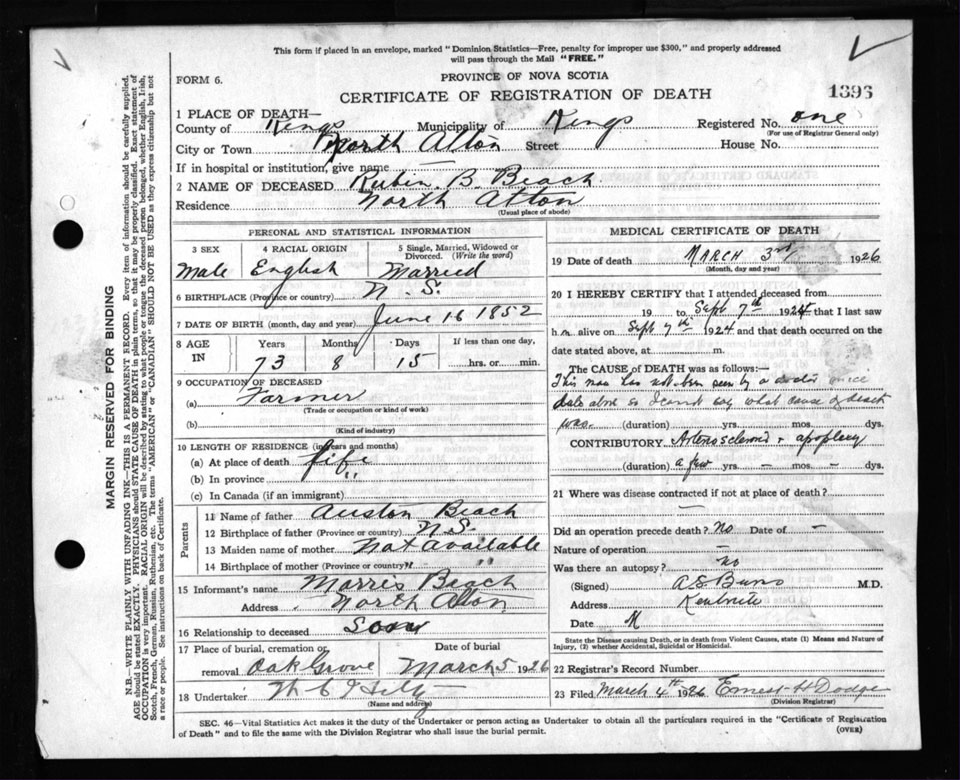 This form if placed in an envelope, marked "Dominion Statistics—Free, penalty for improper use $300," and properly addressed
will pass through the Mail "FREE."
FORM 6.
PROVINCE OF NOVA SCOTIA
CERTIFICATE OF REGISTRATION OF DEATH
1393
1 PLACE OF DEATH—
County of Kings Municipality of Kings Registered No. one
(For use of Registrar General only)
City or Town North Alton Street House No.
If in hospital or institution, give name
2 NAME OF DECEASED Ruben B. Beach
Residence North Alton
(Usual place of abode)
PERSONAL AND STATISTICAL INFORMATION
3 SEX 4 RACIAL ORIGIN 5 Single, Married, Widowed or
Divorced. (Write the word)
Male English Married
6 BIRTHPLACE (Province or country) N. S.
7 DATE OF BIRTH (month, day and year) June 16 1852
8 AGE IN Years Months Days If less than one day,
73 8 15 hrs. or min.
9 OCCUPATION OF DECEASED
(a) Farmer
(Trade or occupation or kind of work)
(b)
(Kind of industry)
10 LENGTH OF RESIDENCE (in years and months)
(a) At place of death life
(b) In province "
(c) In Canada (if an immigrant)
Parents
11 Name of father Auston Beach
12 Birthplace of father (Province or country) N.S.
13 Maiden name of mother Not available
14 Birthplace of mother (Province or country) " "
15 Informant's name Morris Beach
Address North Alton
16 Relationship to deceased Son
17 Place of burial, cremation or Date of burial
removal Oak Grove March 5 1926
18 Undertaker
(Name and address)
MEDICAL CERTIFICATE OF DEATH
19 Date of death MARCH 3rd 1926
(Month, day and year)
20 I HEREBY CERTIFY that I attended deceased from
19 to Sept 7th 1924 that I last saw
him alive on Sept 7th 1924 and that death occurred on the
date stated above, at m.
The CAUSE OF DEATH was as follows:
This man has not been seen by a doctor since
date above so I cannot say what cause of death
was. (duration) yrs. mos. dys.
CONTRIBUTORY Arteriosclerosis + apoplexy
(duration) a few yrs. — mos. — dys.
21 Where was disease contracted if not at place of death?
—
Did an operation precede death? no Date of —
Nature of operation —
Was there an autopsy? no
(Signed) A.S. Burns M.D.
Address Kentville
Date M
State the Disease causing Death, or in death from Violent Causes, state (1) Means and Nature of
Injury, (2) whether Accidental, Suicidal or Homicidal.
22 Registrar's Record Number
23 Filed March 4th 1926 Ernest H Dodge
(Division Registrar)
SEC. 46—Vital Statistics Act makes it the duty of the Undertaker or person acting as Undertaker to obtain all the particulars required in the "Certificate of Registration
of Death" and to file the same with the Division Registrar who shall issue the burial permit.
(OVER)
MARGIN RESERVED FOR BINDING
N.B.—WRITE PLAINLY WITH UNFADING INK—THIS IS A PERMANENT RECORD. Every item of information should be carefully supplied.
AGE should be stated EXACTLY. PHYSICIANS should STATE CAUSE OF DEATH in plain terms, so that it may be properly classified. Exact statement of
OCCUPATION is very important. RACIAL ORIGIN will be described by stating to what people or tongue the deceased person belonged, whether English, Irish,
Scotch, French, German, Russian, Ruthenian, etc. The terms "AMERICAN" or "CANADIAN" SHOULD NOT BE USED as they express citizenship but not
a race or people. See instructions on back of Certificate.